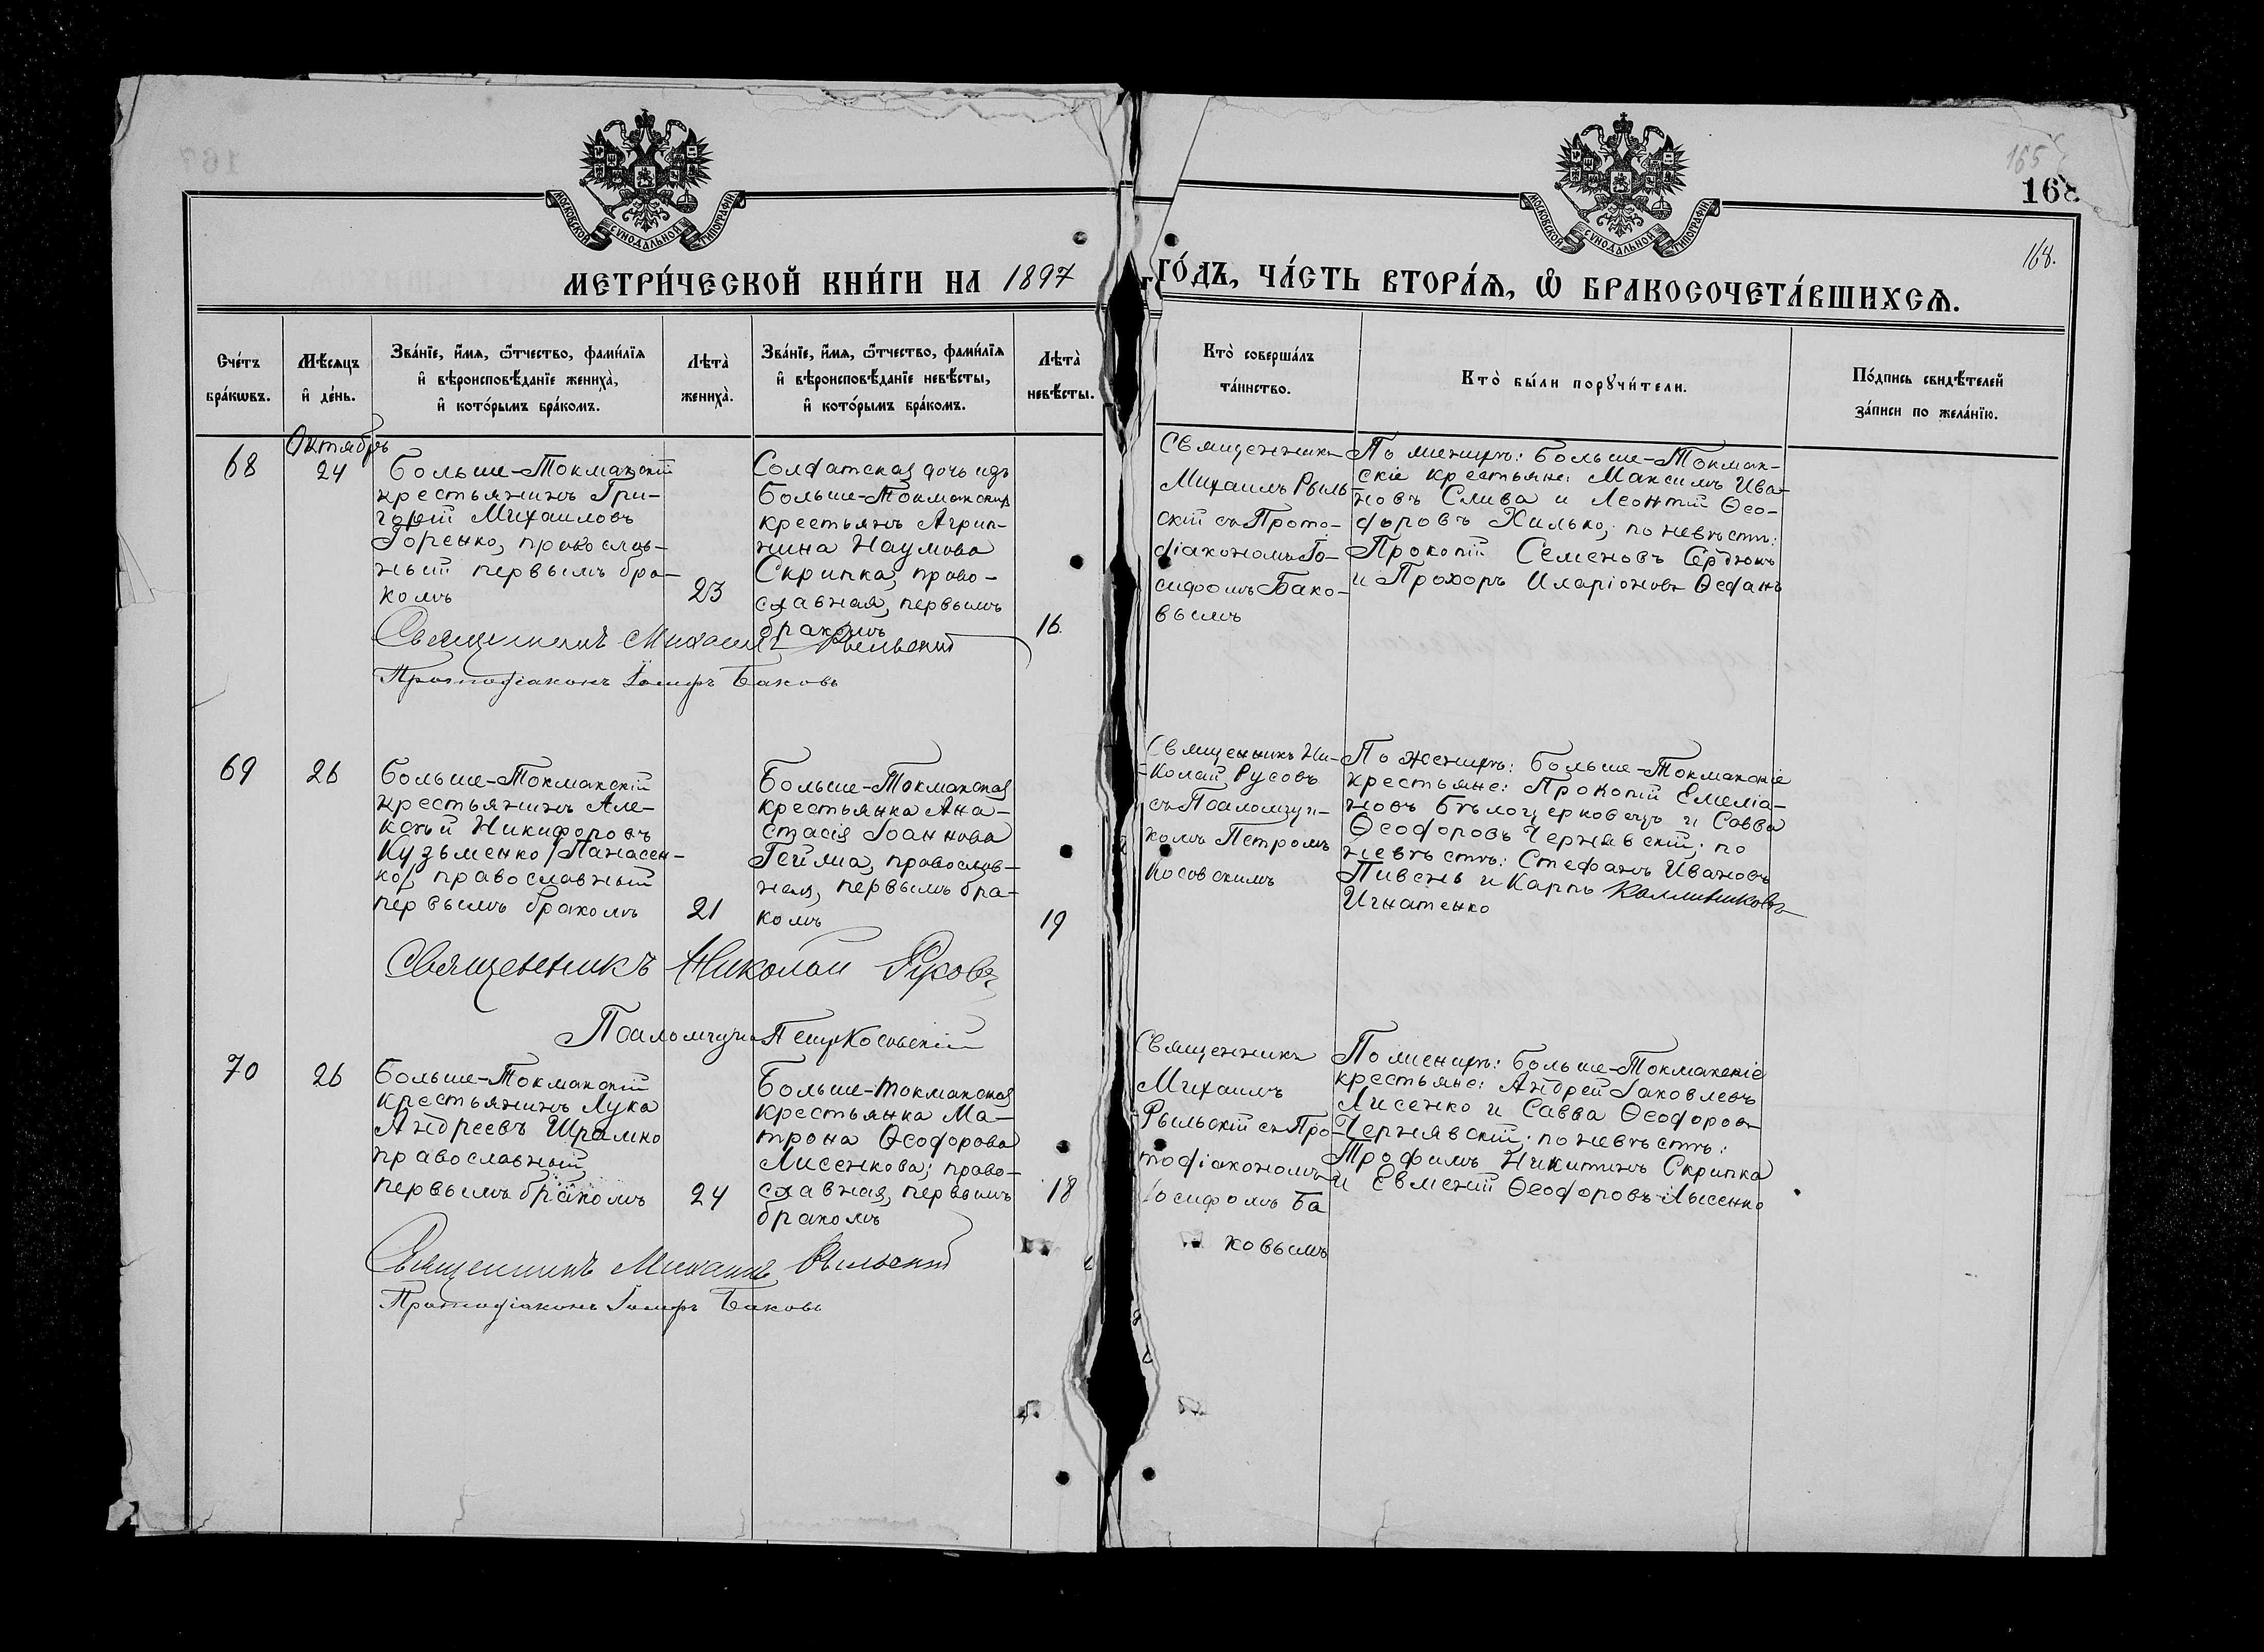 165
168
168.
МОСКОВСКОЙ СѴНОДАЛЬНОЙ ТИПОГРАФІИ.
МОСКОВСКОЙ СѴНОДАЛЬНОЙ ТИПОГРАФІИ.
МЕТРИ́ЧЕСКОЙ КНИ́ГИ НА 1897
ГО́ДЪ, ЧА́СТЬ ВТОРА́Ѧ, Ѽ БРАКОСОЧЕТА́ВШИХСѦ.
Сче́тъ
бра́кѡвъ.
Мѣ́сѧцъ
и҆ де́нь.
Зва́нїе, и҆́мѧ, ѻ҆́тчество, фами́лїѧ
и҆ вѣроисповѣ́данїе жениха̀,
и҆ кото́рымъ бра́комъ.
Лѣта̀
жениха̀.
Зва́нїе, и҆́мѧ, ѻ҆́тчество, фами́лїѧ
и҆ вѣроисповѣ́данїе невѣ́сты,
и҆ кото́рымъ бра́комъ.
Лѣта̀
невѣ́сты.
Кто̀ соверша́лъ
та́инство.
Кто̀ бы́ли порꙋчи́тели.
По́дпись свидѣ́телей
за́писи по жела́нїю.
68
Октябрь
24
Больше-Токмакскій
крестьянинъ Гри-
горій Михаиловъ
Горенко, православ-
ный первымъ бра-
комъ
23
Солдатская дочь изъ
Больше-Токмакскихъ
крестьянъ Агрип-
пина Наумова
Скрипка, право-
славная, первымъ
бракомъ
16.
Священникъ
Михаилъ Рыль-
скій съ Прото-
діакономъ Іо-
сифомъ Бако-
вымъ
По женихѣ: Больше-Токмак-
скіе крестьяне: Максимъ Ива-
новъ Слива и Леонтій Ѳео-
доровъ Хилько; по невѣстѣ:
Прокопій Семеновъ Сердюкъ
и Прохоръ Иларіоновъ
Священникъ Михаилъ Рыльскій
Протодіаконъ Іосифъ Баковъ
69
26
Больше-Токмакскій
крестьянинъ Але-
ксѣй Никифоровъ
Кузьменко /Панасен-
ко/, православный
первымъ бракомъ
21
Больше-Токмакская
крестьянка Ана-
стасія Іоаннова
Гейма, православ-
ная, первымъ бра-
комъ
19
Священникъ Ни-
колай Русовъ
съ Псаломщи-
комъ Петромъ
Косовскимъ
По женихѣ: Больше-Токмакскіе
крестьяне: Прокопій Емеліа-
новъ Бѣлоцерковецъ и Савва
Ѳеодоровъ Чернявскій; по
невѣстѣ: Стефанъ Ивановъ
Пивень и Карпъ Каллиниковъ
Игнатенко
Священникъ Николай Русовъ
Псаломщикъ Петръ Косовскій
70
26
Больше-Токмакскій
крестьянинъ Лука
Андреевъ Шрамко
православный,
первымъ бракомъ
24
Больше-Токмакская
крестьянка Ма-
трона Ѳеодорова
Лисенкова; право-
славная, первымъ
бракомъ
18
Священникъ
Михаилъ
Рыльскій съ Про-
тодіакономъ
Іосифомъ Ба
ковымъ
По женихѣ: Больше-Токмакскіе
крестьяне: Андрей Іаковлевъ
Лисенко и Савва Ѳеодоровъ
Чернявскій; по невѣстѣ:
Трофимъ Никитинъ Скрипка
и Евменій Ѳеодоровъ Лысенко
Священникъ Михаилъ Рыльскій
Протодіаконъ Іосифъ Баковъ